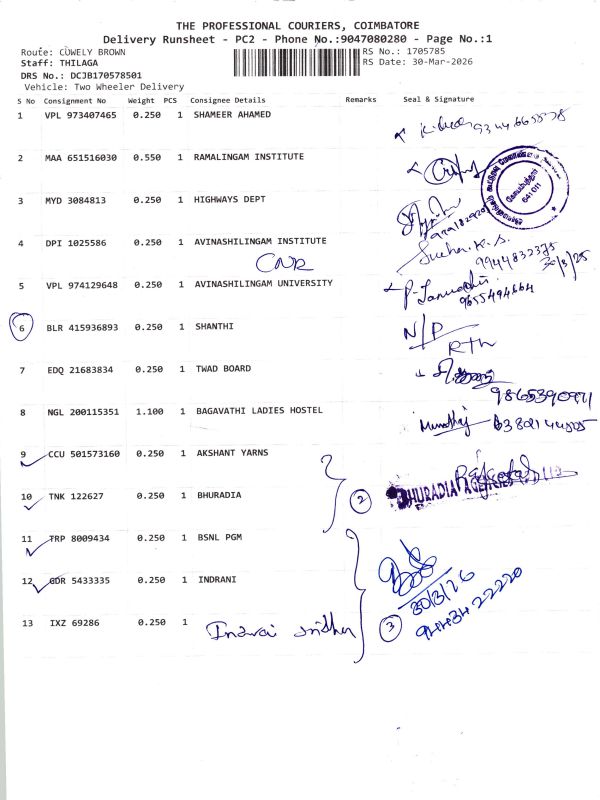 THE PROFESSIONAL COURIERS, COIMBATORE
Delivery Runsheet - PC2 - Phone No.:9047080280 - Page No.:1
Route: COWELY BROWN
RS No.: 1705785
Staff: THILAGA
RS Date: 30-Mar-2026
DRS No.: DCJB170578501
Vehicle: Two Wheeler Delivery
S No Consignment No Weight PCS Consignee Details Remarks Seal & Signature
1 VPL 973407465 0.250 1 SHAMEER AHAMED
2 MAA 651516030 0.550 1 RAMALINGAM INSTITUTE
641 011
3 MYD 3084813 0.250 1 HIGHWAYS DEPT
4 DPI 1025586 0.250 1 AVINASHILINGAM INSTITUTE
9944832375
CNR
5 VPL 974129648 0.250 1 AVINASHILINGAM UNIVERSITY
9655494664
6 BLR 415936893 0.250 1 SHANTHI N/P
RTN
7 EDQ 21683834 0.250 1 TWAD BOARD
8 NGL 200115351 1.100 1 BAGAVATHI LADIES HOSTEL
9 CCU 501573160 0.250 1 AKSHANT YARNS
10 TNK 122627 0.250 1 BHURADIA 2
11 TRP 8009434 0.250 1 BSNL PGM
12 GDR 5433335 0.250 1 INDRANI
30/3/26
94434 22220
13 IXZ 69286 0.250 1 3